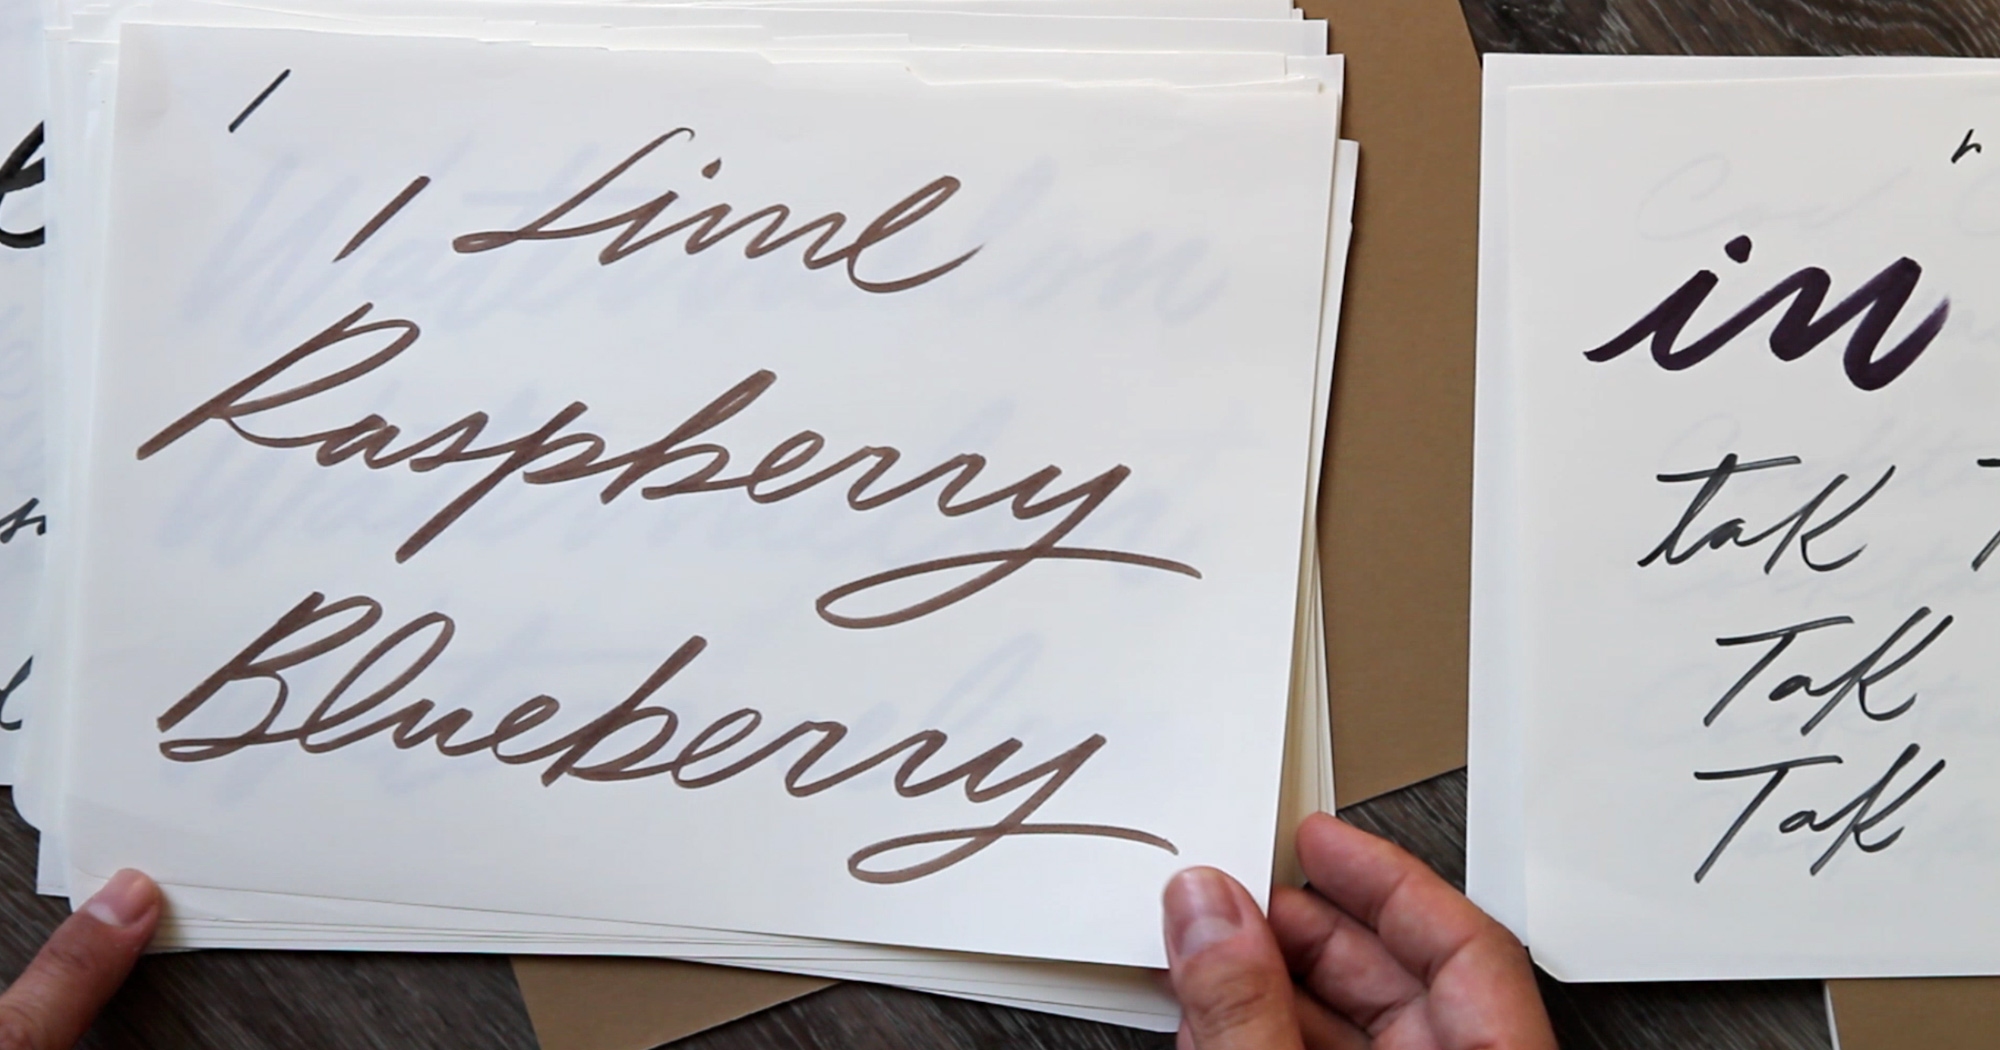 Lime
Raspberry
Blueberry
in
tak
Tak
Tak